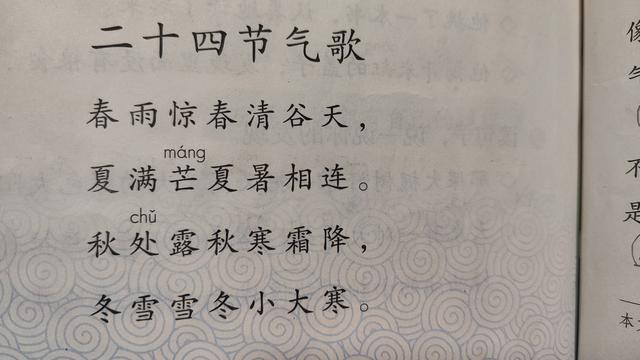 二十四节气歌
春雨惊春清谷天，
máng
夏满芒夏暑相连。
chǔ
秋处露秋寒霜降，
冬雪雪冬小大寒。
像
气
不
是
本